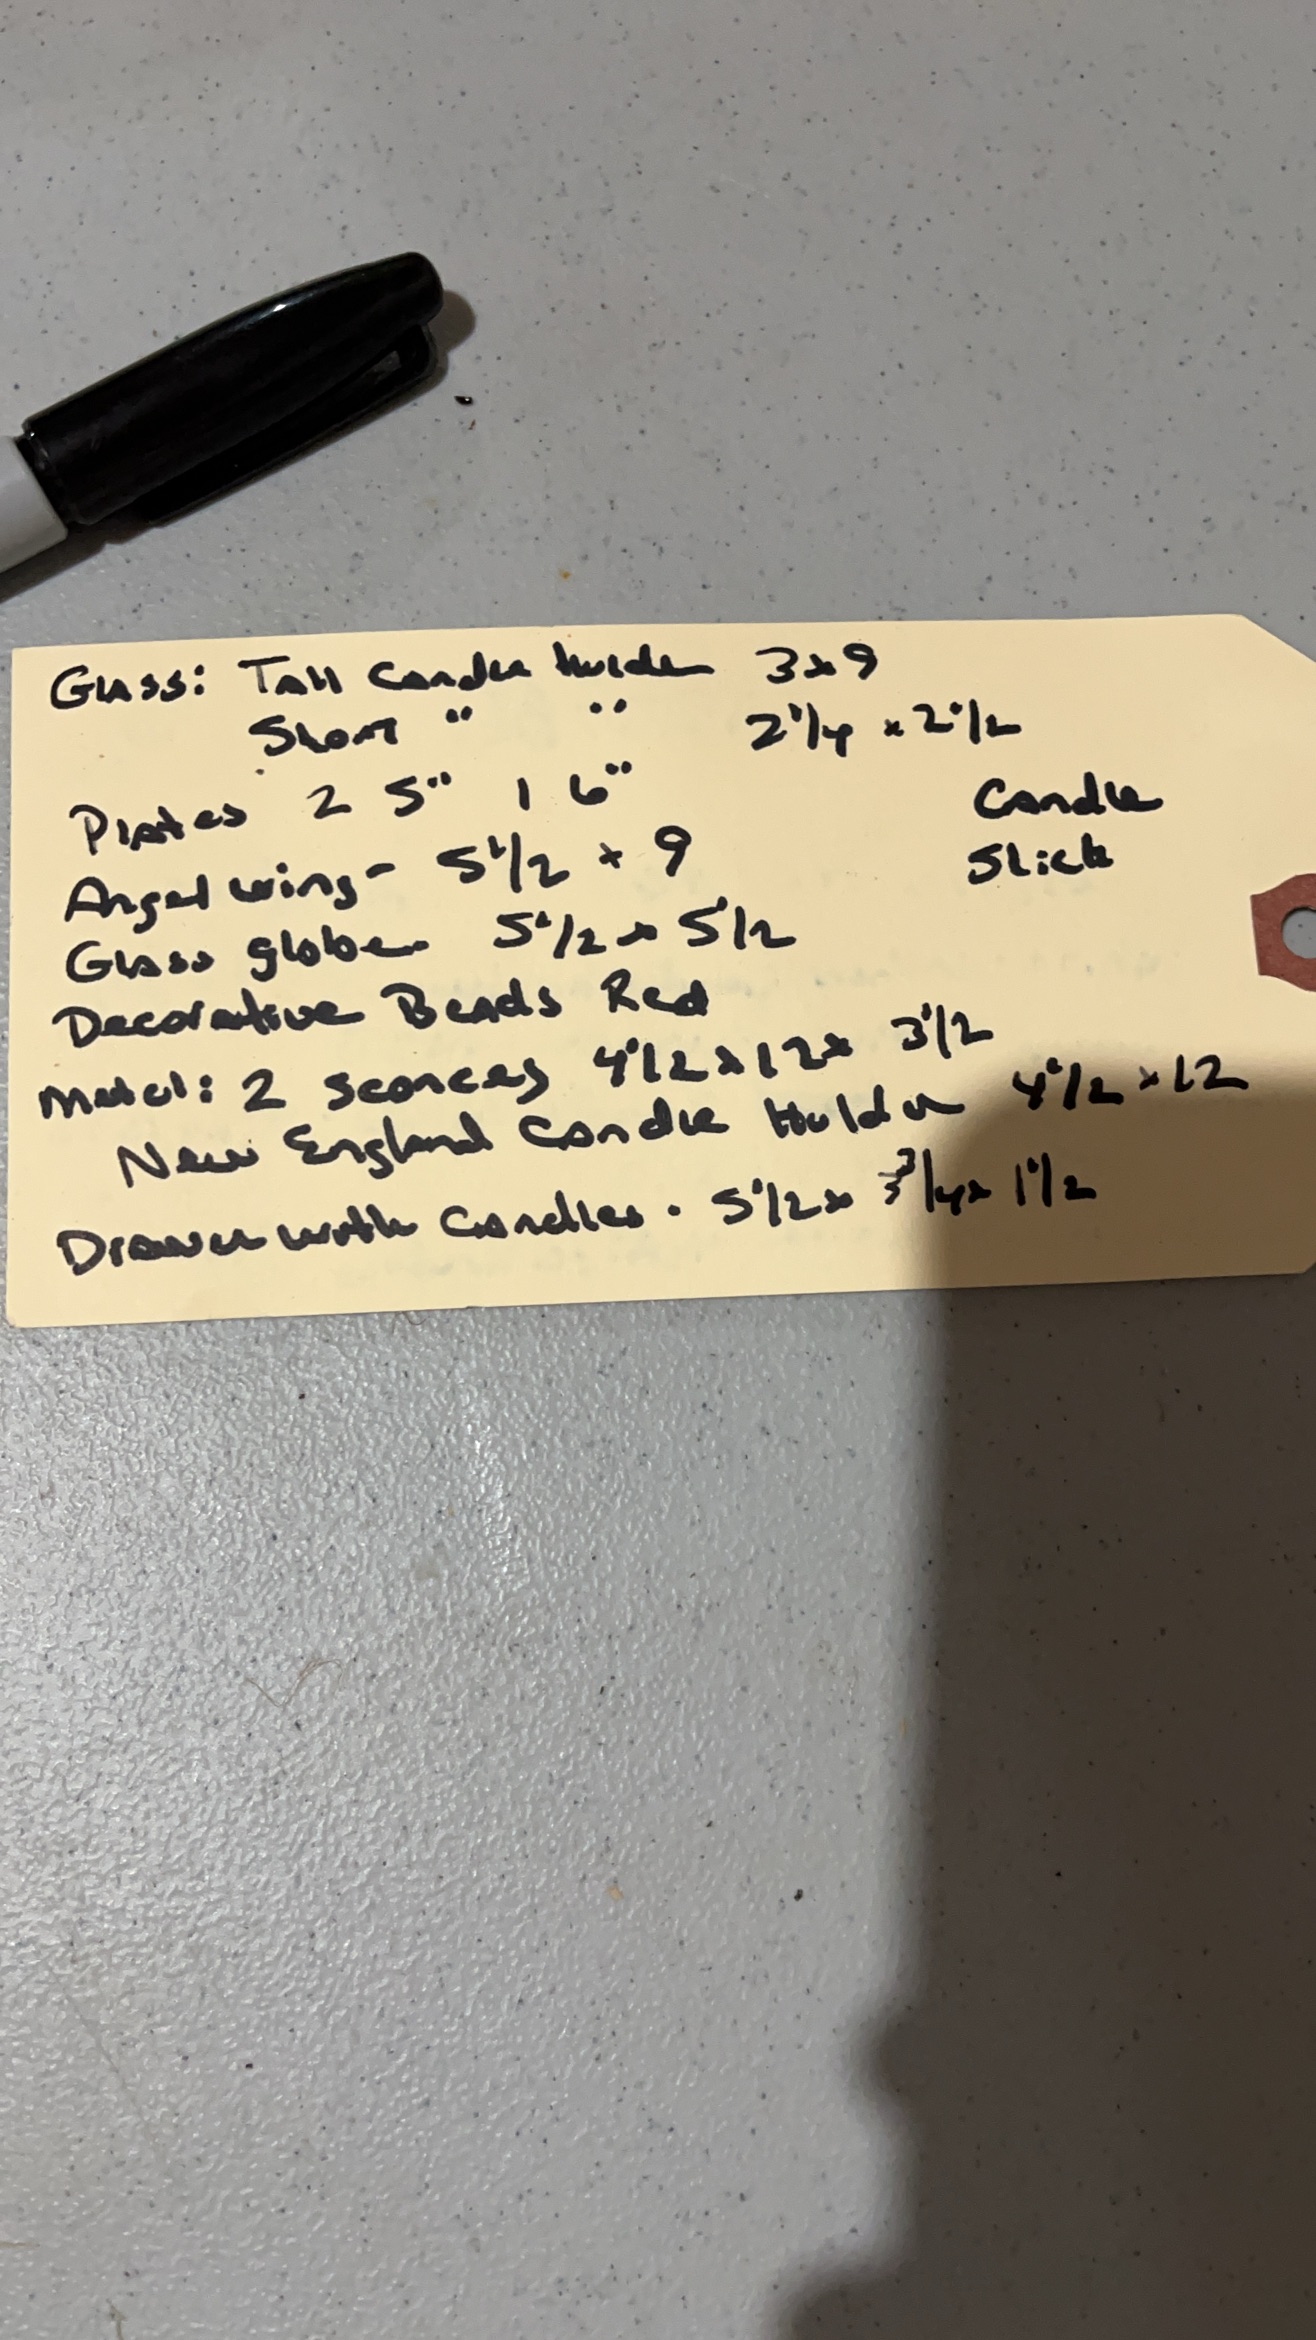 Glass: Tall Candle Holder 3x9
Short " " 2 1/4 x 2 1/2
Plates 2 5" 1 6"
Candle
Stick
Angel wing - 5 1/2 x 9
Glass globe 5 1/2 x 5 1/2
Decorative Beads Red
Metal: 2 sconces 4 1/2 x 12 x 3 1/2
New England Candle Holder 4 1/2 x 12
Drawer with Candles - 5 1/2 x 3/4 x 1 1/2